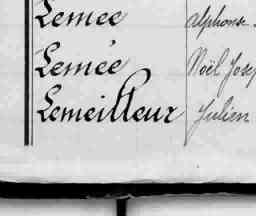 Lemée Alphonse
Lemée Noël Jose
Lemeilleur Julien